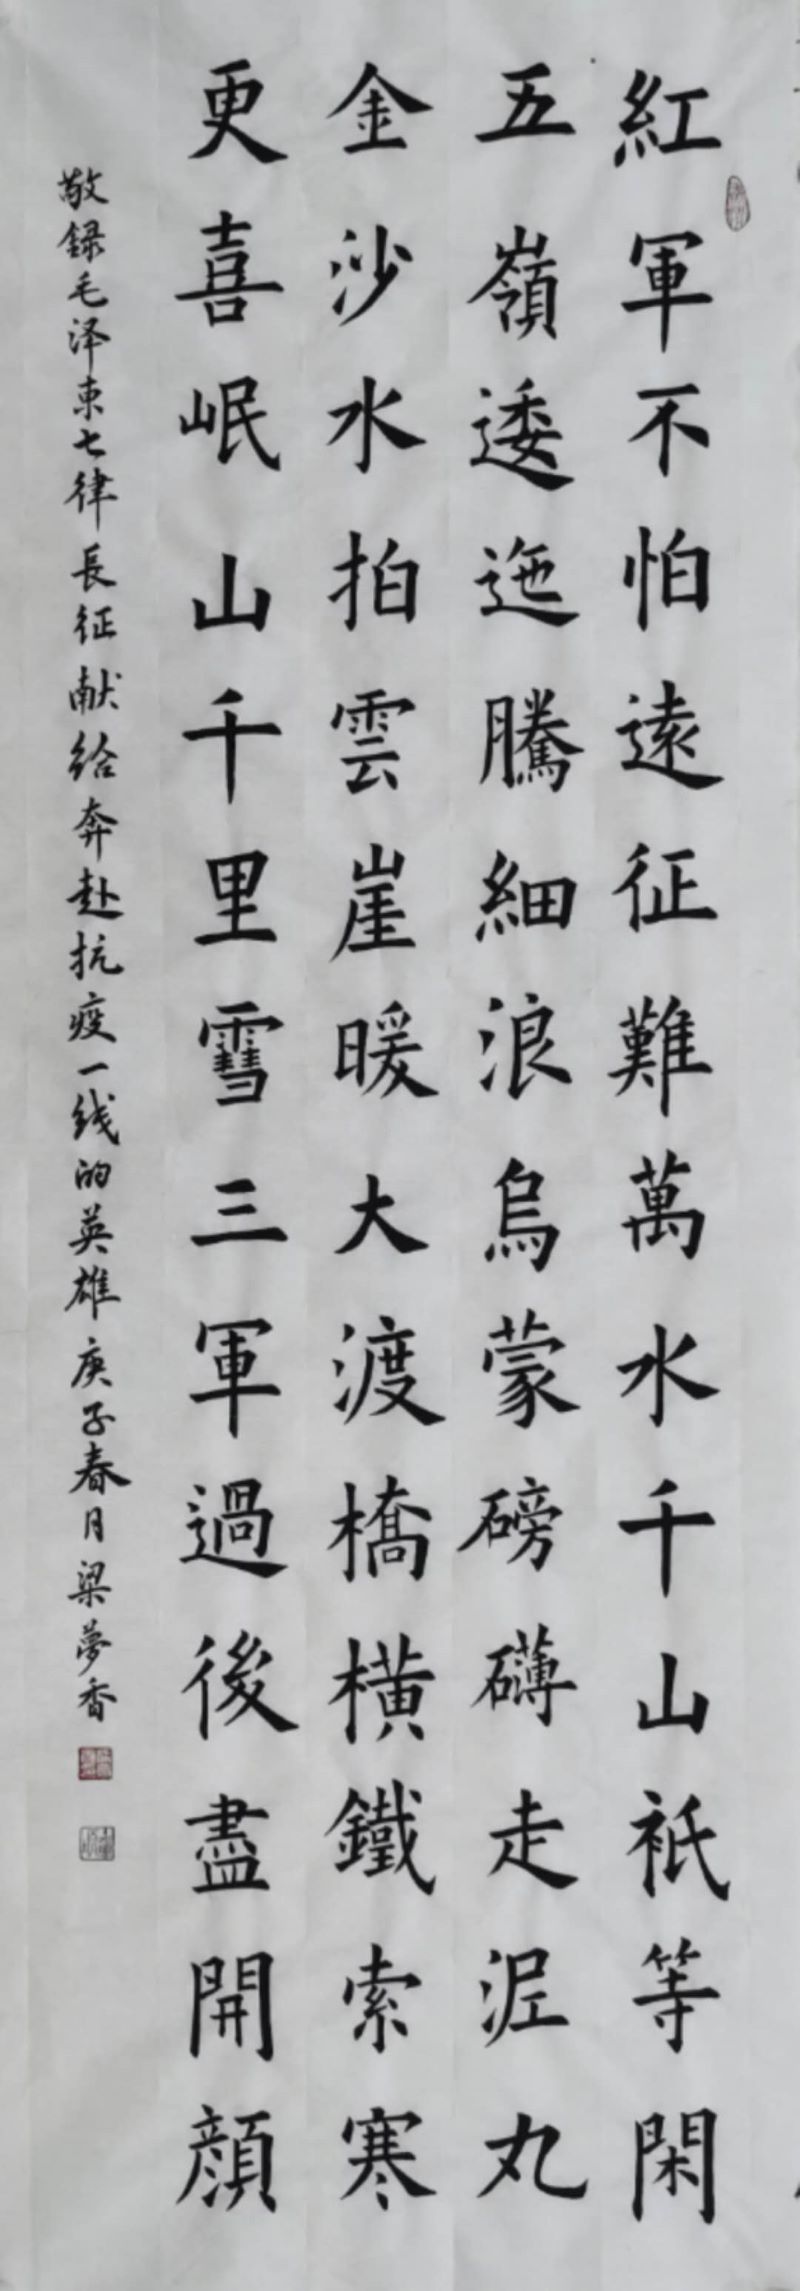 紅軍不怕遠征難萬水千山祇等閑
五嶺逶迤騰細浪烏蒙磅礴走泥丸
金沙水拍雲崖暖大渡橋橫鐵索寒
更喜岷山千里雪三軍過後盡開顏
敬録毛泽東七律長征献给奔赴抗疫一线的英雄庚子春月梁夢香